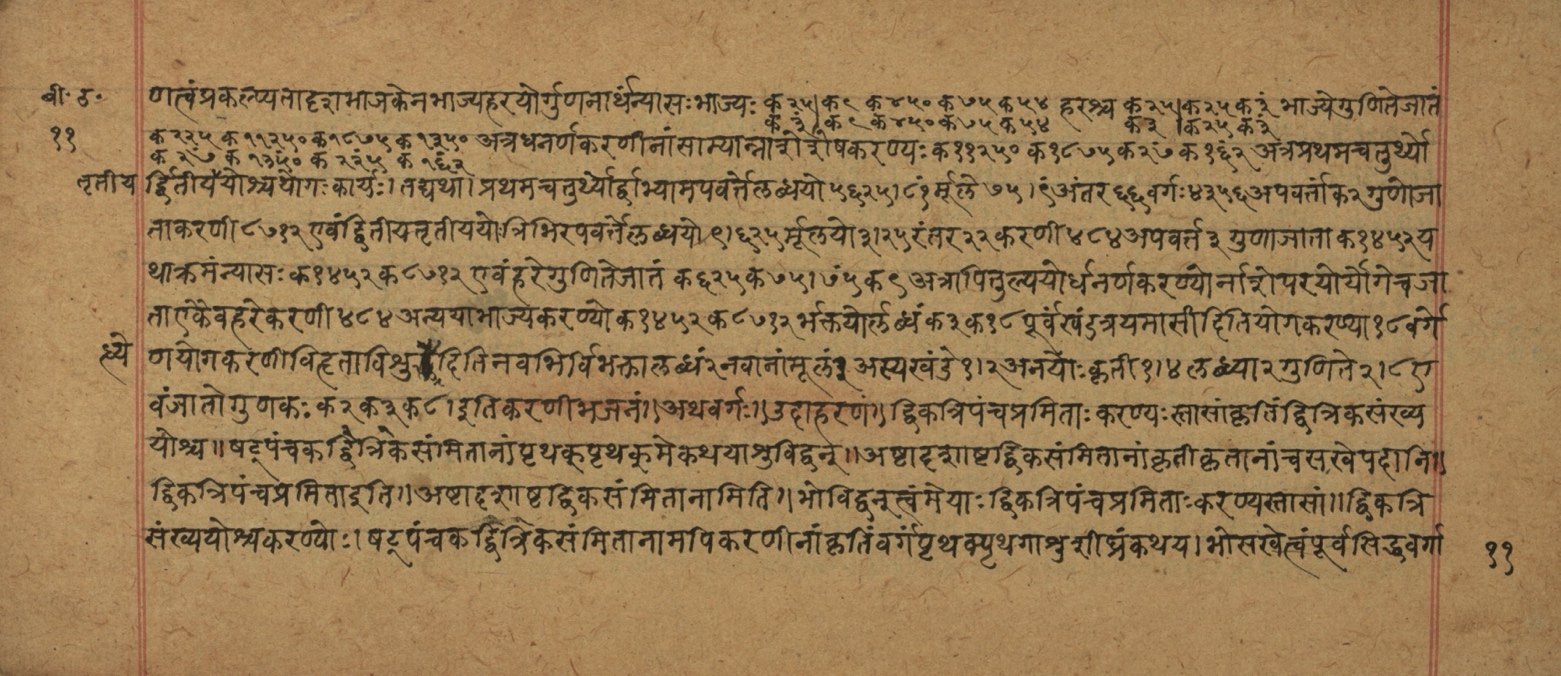 बी॰ ठ॰
११
णत्वंप्रकल्प्यतादृशभाजकेनभाज्यहरयोर्गुणनार्थंन्यासःभाज्यः क २५।क ९ क ४५० क ७५ क ५४ हरश्च क २५।क २५ क ३ं भाज्येगुणितेजातं
क ३ं।क ९ क ४५० क ७५ क ५४ क ३ ।क २५ क ३ं
क २२५ क ११२५० क १८७५ क १३५० अत्रधनर्णकरणीनांसाम्यान्नाशेशेषकरण्यः क ११२५० क १८७५ क २ं७ क १६ं२ अत्रप्रथमचतुर्थ्यो
क २ं७ क १३ं५० क २२ं५ क १६ं२
तृतीय
र्द्वितीययोश्चयोगःकार्यः। तद्यथा। प्रथमचतुर्थ्योर्द्वाभ्यामपवर्त्तेलब्धयो ५६२५।८१ं र्मूले ७५।९ं अंतर ६६ वर्गः ४३५६ अपवर्त्ताक २ गुणोजा
ताकरणी ८७१२ एवंद्वितीयतृतीययोःत्रिभिरपवर्त्तेलब्धयो ९।६२५ र्मूलयो ३।२५ रंतर २२ करणी ४८४ अपवर्त्त ३ गुणाजाता क १४५२ य
थाक्रमंन्यासः क १४५२ क ८७१२ एवंहरेगुणितेजातं क ६२५ क ७५। ७ं५ क ९ अत्रापितुल्ययोर्धनर्णकरण्योर्नाशेपरयोर्योगेचजा
ताएकैवहरेकरणी ४८४ अन्ययाभाज्यकरण्यो क १४५२ क ८७१२ र्भक्तयोर्लब्धं क ३ क १८ पूर्वंखंडत्रयमासीदितियोगकरण्या १८ वर्गे
ध्ये
णयोगकरणीविहृताविशुदितिनवभिर्विभक्तालब्धं २ नवानांमूलं ३ अस्यखंडे १।२ अनयोःकृती १।४ लब्ध्या २ गुणिते २।८ ए
वंजातोगुणकः क २ क ३ क ८। इतिकरणीभजनं।। अथवर्गः।। उदाहरणं।। द्विकत्रिपंचप्रमिताःकरण्यःस्तासांकृतिंद्वित्रिकसंख्य
योश्च।। षट्पंचकद्वित्रिकसंमितानांपृथक्पृथक्मेकथयाशुविद्वन्।। अष्टादशाष्टद्विकसंमितानांकृतीकृतानांचसखेपदानि।।
द्विकत्रिपंचप्रमिताइति।। अष्टादशाष्टद्विकसंमितानामिति।। भोविद्वन्त्वंमेयाःद्विकत्रिपंचप्रमिताःकरण्यस्तासां।। द्विकत्रि
संख्ययोश्चकरण्योः। षट्पंचकद्वित्रिकसंमितानामपिकरणीनांकृतिंवर्गंपृथक्पृथगाशुशीघ्रंकथय। भोसखेत्वंपूर्वसिद्धवर्गा
११